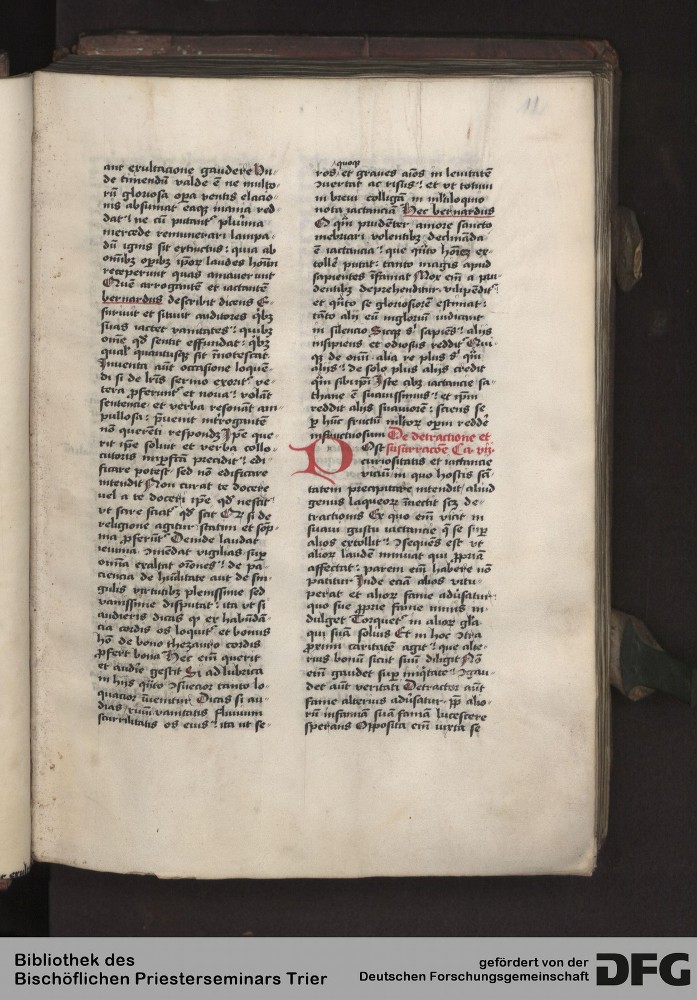 11
aut exultacione gaudere Un
de timendū valde ē ne multo
rū gloriosa opa ventis elacio
nis absumat eaqz inania red
dat ne cū putant plurima
mercede remunerari lampa
dū ignis sit extinctus quia ab
omībz opībz ipoꝝ laudes homīn
receperunt quas amauerunt
arrogantē et iactantē
bernardus describit dicens E
suriuit et sitiuit auditores qbz
suas iactet vanitates quibz
ome qd sentit effundat qbz
qual quantusqz sit innotescat
Inuenta aut occasione loquē
di si de lris sermo exorit ve
tera pferunt et noua volāt
sentencie et verba resonāt am
pullosa preuenit introgātē
nō querēti respondz Ipe que
rit ipe soluit et verba collo
cutoris impfcā precidit edi
ficare potest sed nō edificare
intendit Non curat te docere
vel a te doceri ipe qd nescit
vt scire sciat qd scit Qꝛ si de
religione agitur statim et sōp
nia pferūt Deinde laudat
ieiunia 9mēdat vigilias sup
omnia exaltat orōnes de pa
ciencia de hūilitate aut de sin
gulis virtutibz plenissime sed
vanissime disputat ita vt si
audieris dicas qꝫ ex habūdā
cia cordis os loquit et bonus
hō de bono thezauro cordis
pfert bona Hec eim querit
et audire gestit Si ad lubrica
in hijs qnto 9suecior tanto lo
quacior inuenitur Dicas si au
dias riuū vanitatis fluuium
scurrilitatis os eius ita ut se
quoqz
ros et graues aīos in leuitatē
9uertat ac risus et vt totum
in breui colligā in mltiloquio
nota iactanciā Hec bernardus
O qm prudenter amore sancto
mebrari volentibz declināda
ē iactancia que qnto homēz ex
tollē putat tanto magis apud
sapientes infamat Mox eim a pru
dentibz deprehenditur vilipendit
et qnto se gloriosiorē estimat
tāto aln eū ingloriū iudicant
in silencio Sicqz sꝫ sapiens alijs
insipiens et odiosus reddit Qui
qz de omi alia re plus sꝫ qm
alijs de solo plus alijs credit
qm sibiipi Iste cibz iactancie sa
thane ē suauissimus et ipm
reddit alijs suauiorē sciens se
p huc fructū mltoꝝ opm reddē
infructuosum De detractione et
susurracōe Ca vij
Post
curiositatis et iactancie
viciū in quo hostis sā
tatem precipitare intendit aliud
genus laqueoꝝ innectit scz de
tractionis Ex quo eim viciat in
suaui gustu iactancie q se sup
alios extollit 9sequēs est vt
alioꝝ laudē minuat qui ppriam
affectat parem eim habere nō
patitur Inde eciā alios vitu
perat et alioꝝ fame adūsatur
quo sue pprie fame nimis in
dulget Torquet in alioꝝ glā
qui suā solius Et in hoc 9tra
proximi caritatē agit que alte
rius bonū sicut suū diligit Nō
eim gaudet sup iniqtate 9gau
det aut veritati Detractor aut
fame alterius adūsatur pp alio
rū infamiā suā famā lucescere
sperans Opposita eim iuxta se
Bibliothek des
Bischöflichen Priesterseminars Trier
gefördert von der
Deutschen Forschungsgemeinschaft
DFG